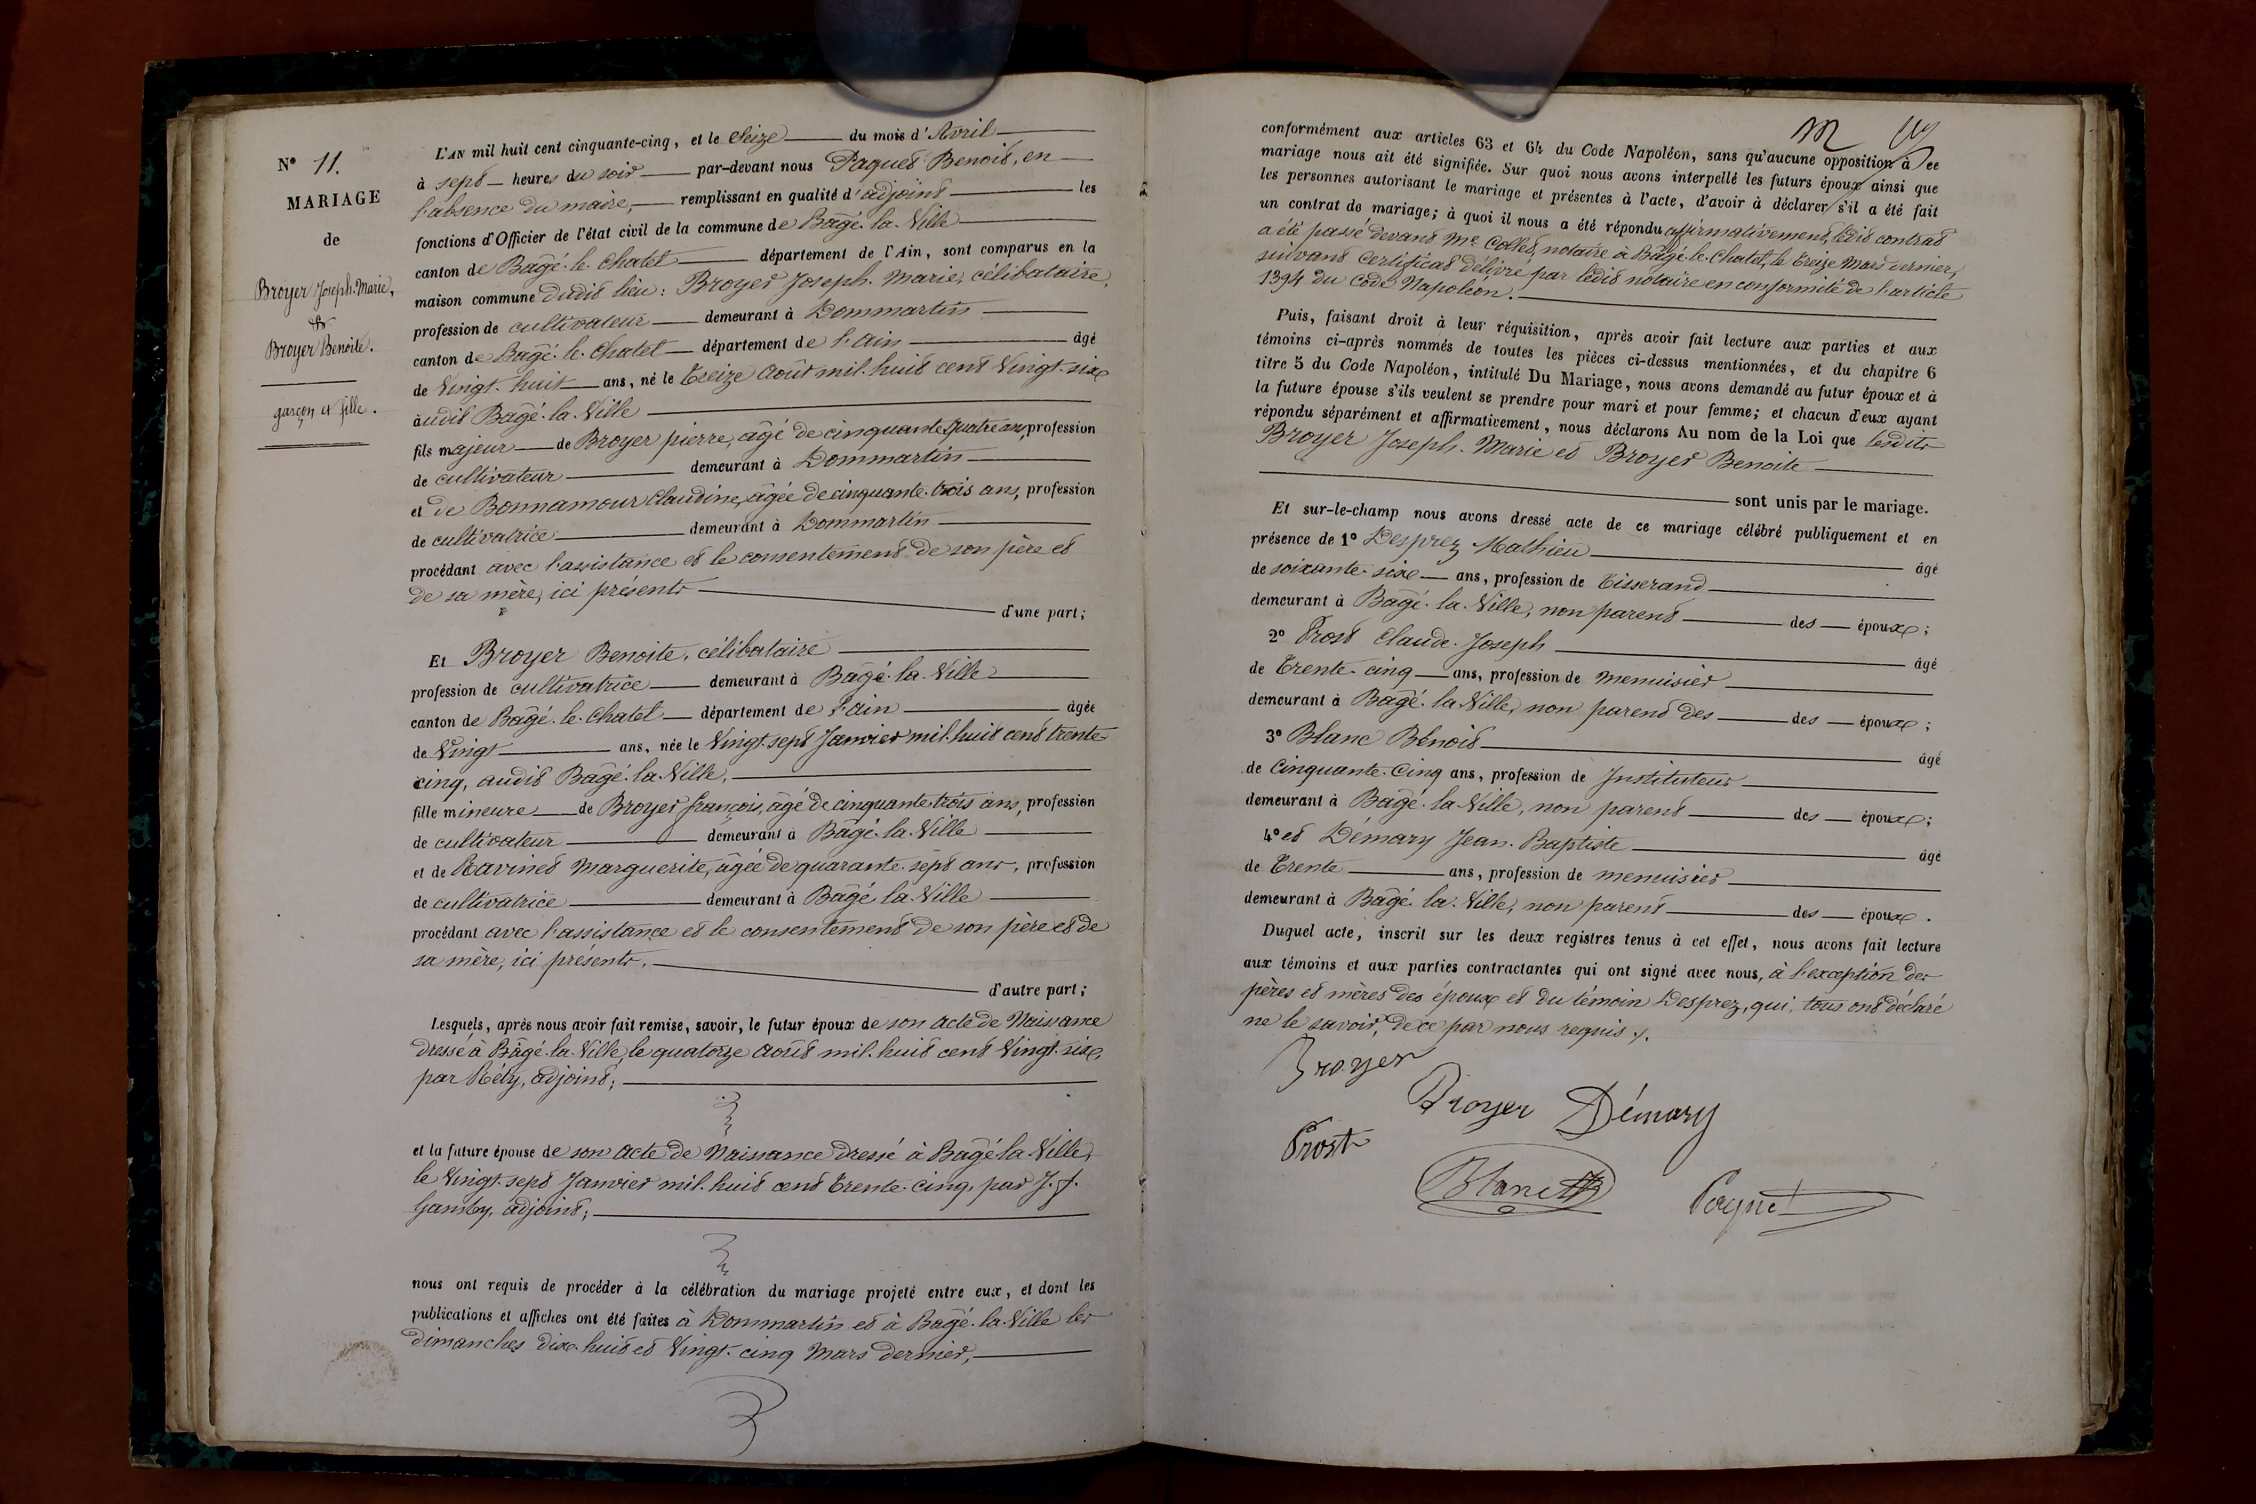 N° 11.
MARIAGE
de
Broyer Joseph-Marie,
et
Broyer Benoite.
garçon et fille.
L'AN mil huit cent cinquante-cinq, et le Seize du mois d'Avril
à sept heures du soir par-devant nous Paquet Benoit, en
l'absence du maire, remplissant en qualité d'adjoint les
fonctions d'Officier de l'état civil de la commune de Bâgé-la-Ville
canton de Bâgé-le-Chatel département de l'Ain, sont comparus en la
maison commune dudit lieu : Broyer Joseph-Marie, célibataire,
profession de cultivateur demeurant à Dommartin
canton de Bâgé-le-Chatel département de l'ain âgé
de Vingt-huit ans, né le treize Août mil-huit cent Vingt-six
audit Bâgé-la-Ville
fils majeur de Broyer pierre, âgé de cinquante quatre ans, profession
de cultivateur demeurant à Dommartin
et de Bonnamour Claudine, âgée de cinquante-trois ans, profession
de cultivatrice demeurant à Dommartin
procédant avec l'assistance et le consentement de son père et
de sa mère, ici présents
d'une part ;
Et Broyer Benoite, célibataire
profession de cultivatrice demeurant à Bâgé-la-Ville
canton de Bâgé-le-Chatel département de l'ain âgée
de Vingt ans, née le Vingt-sept Janvier mil-huit cent trente-
cinq, audit Bâgé-la-Ville,
fille mineure de Broyer françois, âgé de cinquante-trois ans, profession
de cultivateur demeurant à Bâgé-la-Ville
et de Ravinet Marguerite, âgée de quarante-sept ans, profession
de cultivatrice demeurant à Bâgé la-Ville
procédant avec l'assistance et le consentement de son père et de
sa mère, ici présents.
d'autre part ;
Lesquels, après nous avoir fait remise, savoir, le futur époux de son acte de Naissance
dressé à Bâgé-la-Ville, le quatorze Août mil-huit cent Vingt-six,
par Rély, adjoint ;
et la future épouse de son acte de Naissance dressé à Bâgé la-Ville,
le Vingt-sept Janvier mil-huit cent Trente-cinq, par J. J.
Gamby, adjoint ;
nous ont requis de procéder à la célébration du mariage projeté entre eux, et dont les
publications et affiches ont été faites à Dommartin et à Bâgé-la-Ville les
dimanches dix-huit et Vingt-cinq Mars dernier,
conformément aux articles 63 et 64 du Code Napoléon, sans qu'aucune opposition à ce
mariage nous ait été signifiée. Sur quoi nous avons interpellé les futurs époux ainsi que
les personnes autorisant le mariage et présentes à l'acte, d'avoir à déclarer s'il a été fait
un contrat de mariage ; à quoi il nous a été répondu affirmativement, ledit contrat
a été passé devant Me Collet, notaire à Bâgé-le-Chatel, le treize Mars dernier,
suivant Certificat délivré par ledit notaire en conformité de l'article
1394 du code Napoléon.
Puis, faisant droit à leur réquisition, après avoir fait lecture aux parties et aux
témoins ci-après nommés de toutes les pièces ci-dessus mentionnées, et du chapitre 6
titre 5 du Code Napoléon, intitulé Du Mariage, nous avons demandé au futur époux et à
la future épouse s'ils veulent se prendre pour mari et pour femme ; et chacun d'eux ayant
répondu séparément et affirmativement, nous déclarons Au nom de la Loi que lesdits
Broyer Joseph-Marie et Broyer Benoite
sont unis par le mariage.
Et sur-le-champ nous avons dressé acte de ce mariage célébré publiquement et en
présence de 1° Desprez Mathieu âgé
de soixante-six ans, profession de Tisserand
demeurant à Bâgé-la-Ville, non parent des époux ;
2° Prost Claude-Joseph âgé
de Trente-cinq ans, profession de menuisier
demeurant à Bâgé-la-Ville, non parent des des époux ;
3° Blanc Benoit âgé
de Cinquante-Cinq ans, profession de Instituteur
demeurant à Bâgé-la-Ville, non parent des époux ;
4° et Démary Jean-Baptiste âgé
de Trente ans, profession de menuisier
demeurant à Bâgé-la-Ville, non parent des époux.
Duquel acte, inscrit sur les deux registres tenus à cet effet, nous avons fait lecture
aux témoins et aux parties contractantes qui ont signé avec nous, à l'exception des
pères et mères des époux et du témoin Desprez, qui, tous ont déclaré
ne le savoir, de ce par nous requis.
Broyer
Broyer Démary
Prost
Blanc
Paquet